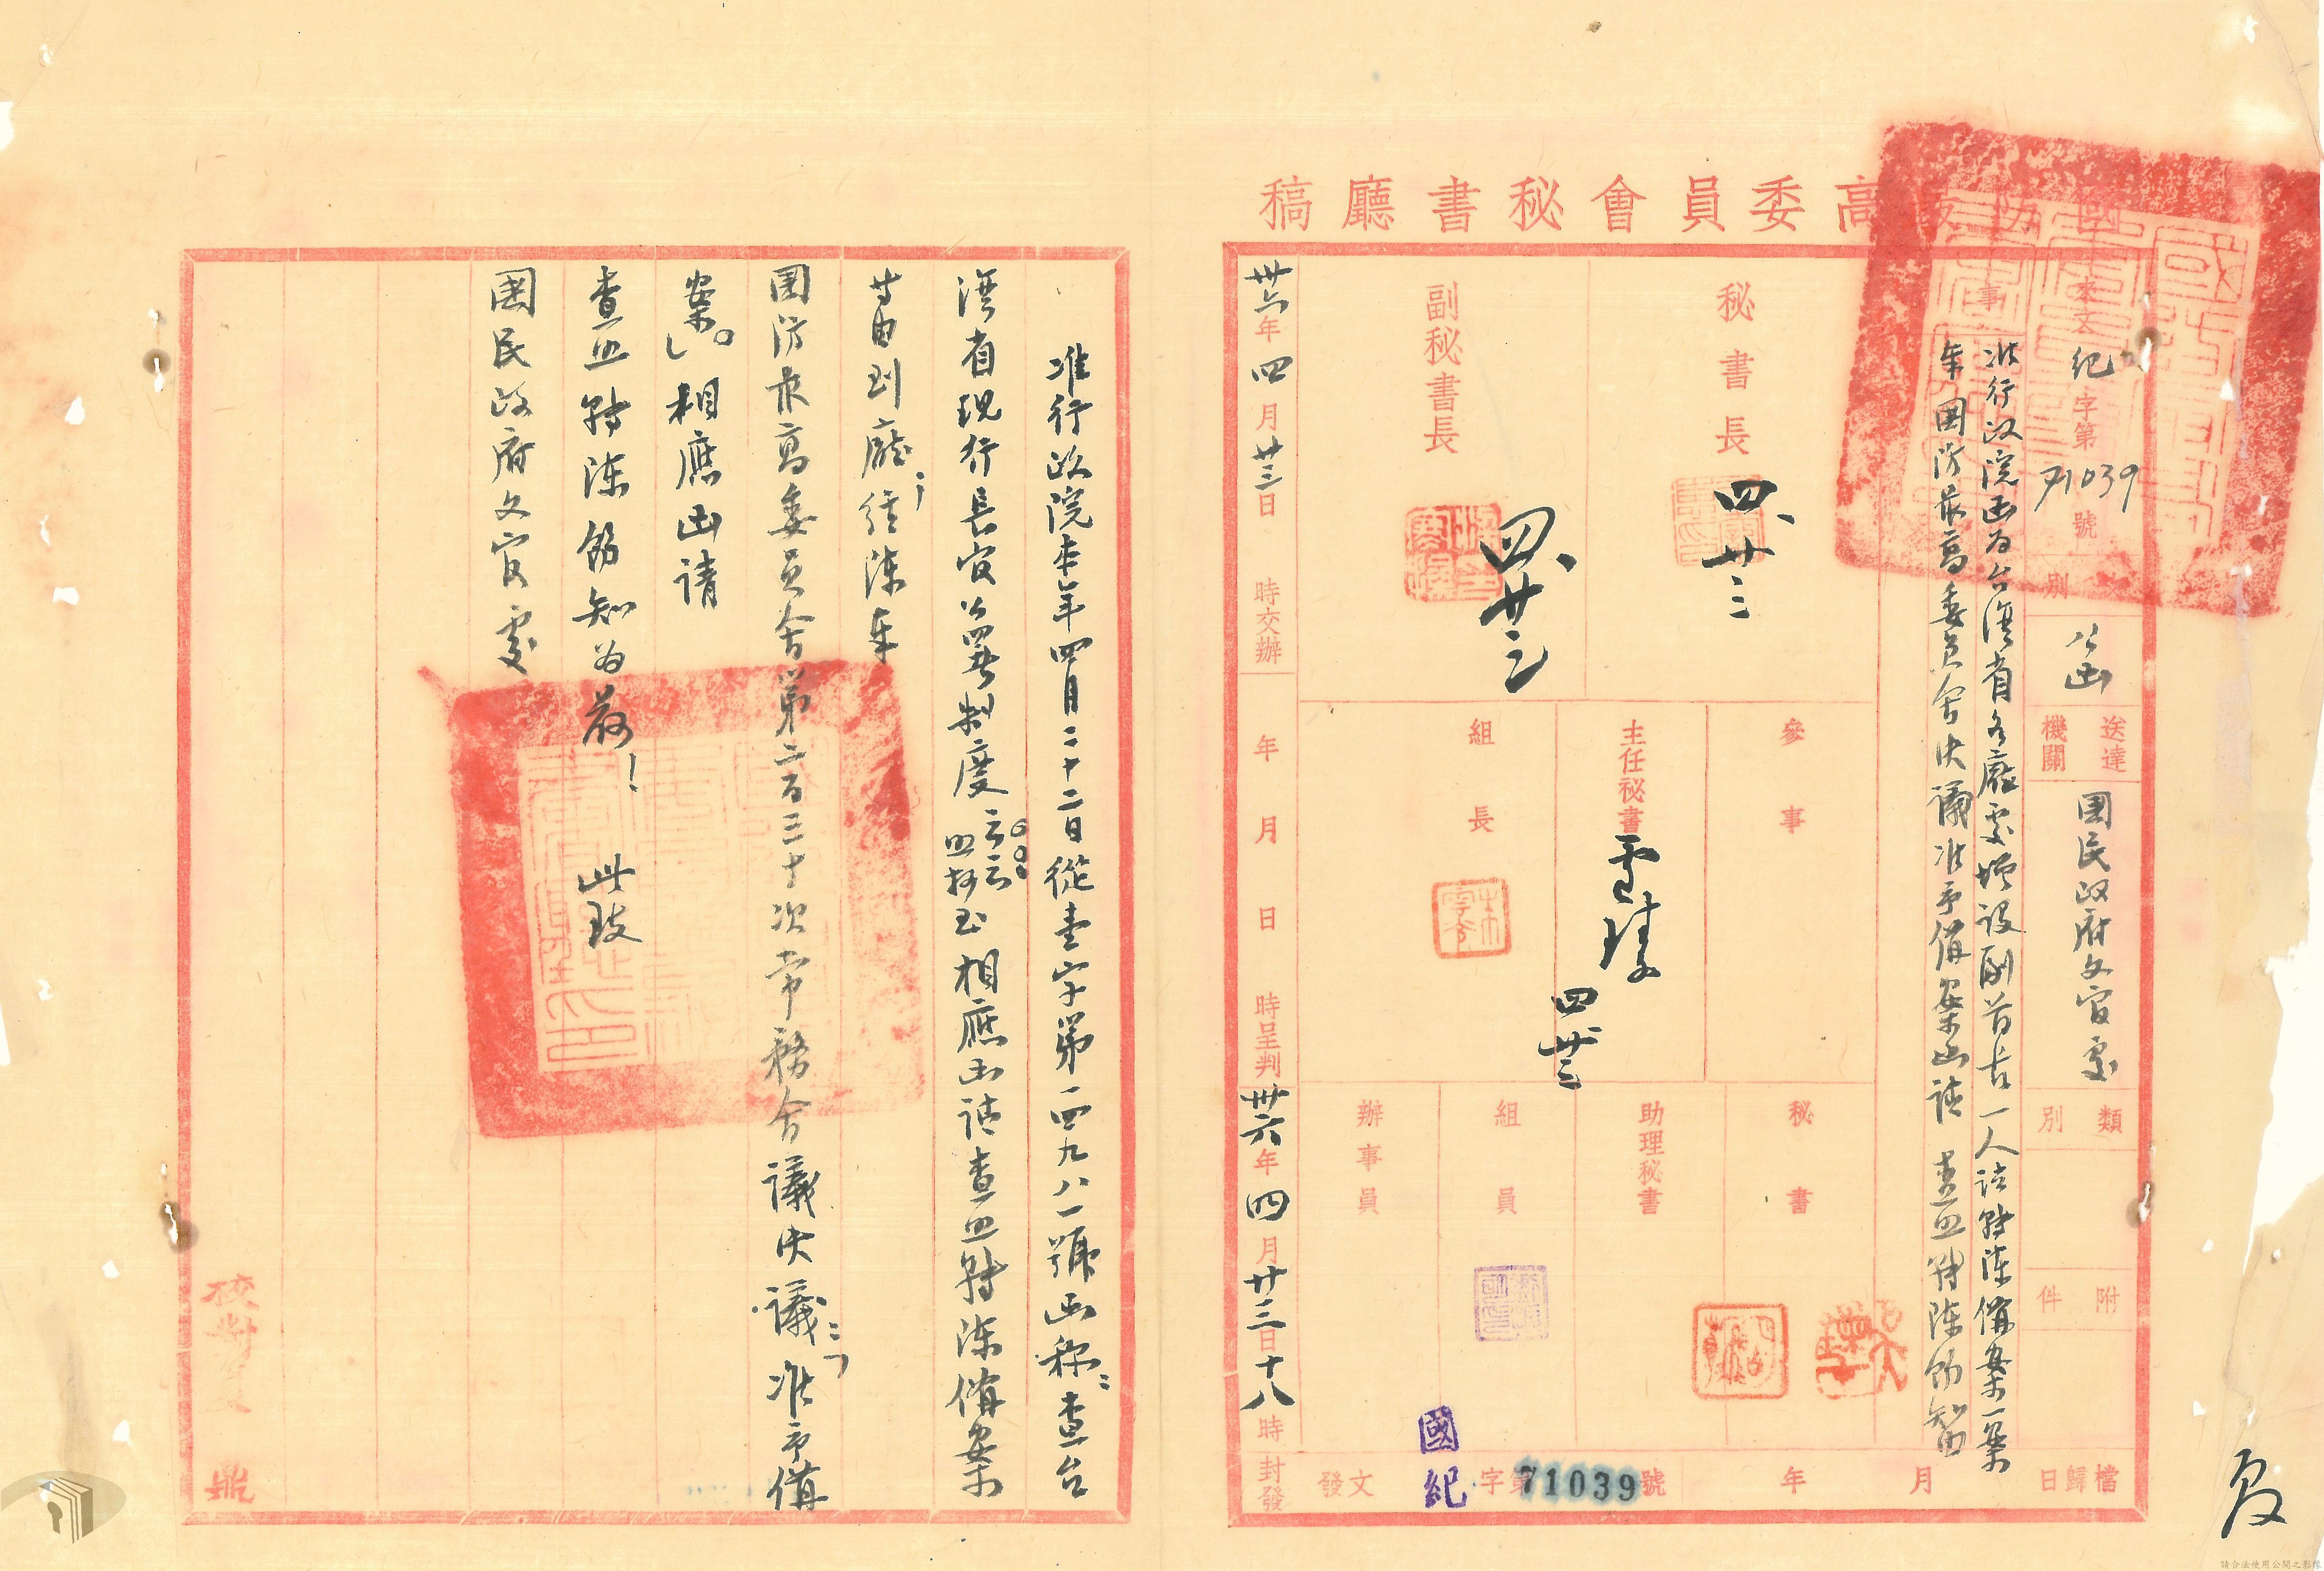 國防最高委員會秘書廳稿
來文 紀字第71039號
文別 公函
送達機關 國民政府文官處
類別
附件
檔歸 日
事
准行政院函為台灣省各廳處增設副首長一人請轉陳備案一案
奉國防最高委員會決議准予備案函請 查照轉陳飭知
秘書長 四、廿三
副秘書長 四、廿三
參事
主任秘書
四廿三
組長
秘書
助理秘書
組員
辦事員
年 月
發文 國紀字第71039號
卅六年四月廿三日 時交辦
年 月 日 時呈判
卅六年四月廿三日十八時封發
准行政院本年四月二十二日從壹字第一四九八一號函稱：查台
灣省現行長官公署制度云云照抄至相應函請查照轉陳備案
等由到廳；經陳奉
國防最高委員會第二百三十次常務會議決議：「准予備
案。」相應函請
查照轉陳飭知為荷！ 此致
國民政府文官處
校對
請合法使用公開之影像